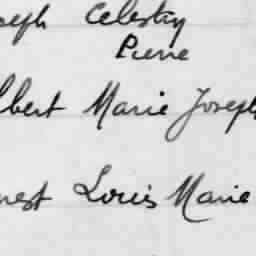 seph Celestin
Pierre
lbert Marie Joseph
nest Louis Marie